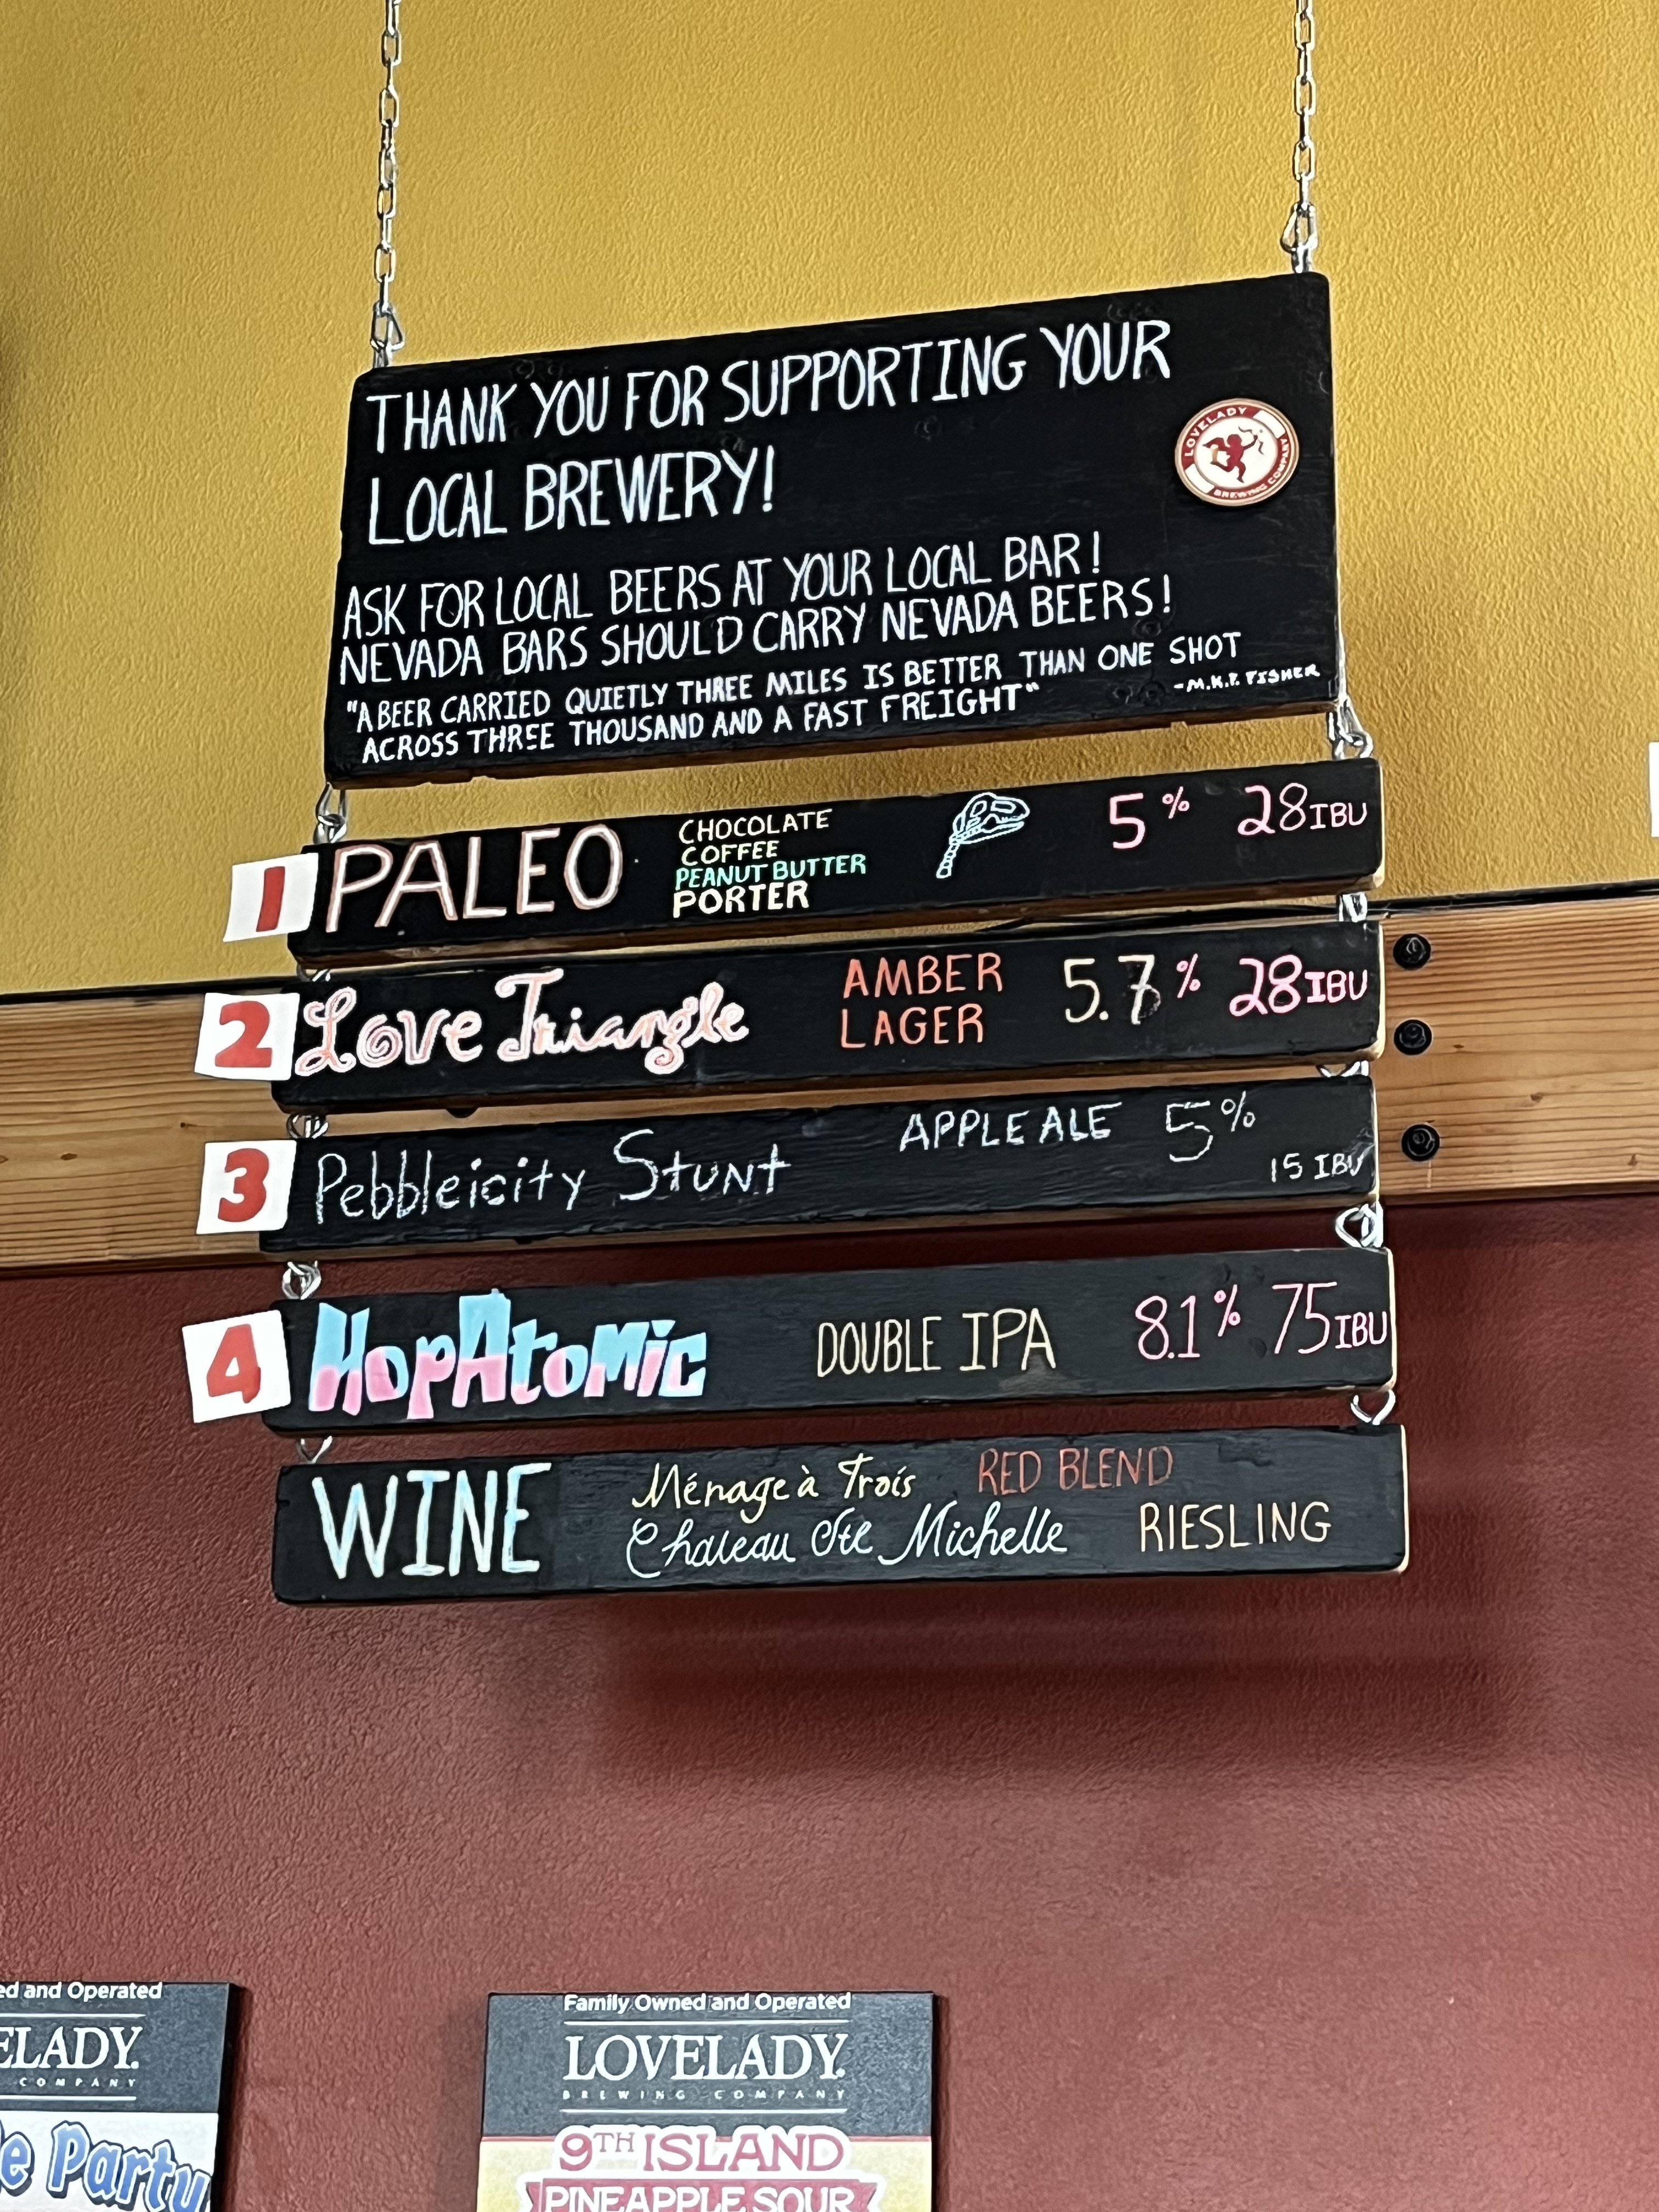 THANK YOU FOR SUPPORTING YOUR
LOCAL BREWERY!
LOVELADY
BREWING COMPANY
ASK FOR LOCAL BEERS AT YOUR LOCAL BAR!
NEVADA BARS SHOULD CARRY NEVADA BEERS!
"A BEER CARRIED QUIETLY THREE MILES IS BETTER THAN ONE SHOT
ACROSS THREE THOUSAND AND A FAST FREIGHT"
-M.K.F. FISHER
1 PALEO
CHOCOLATE
COFFEE
PEANUT BUTTER
PORTER
5% 28 IBU
2 Love Triangle
AMBER
LAGER
5.7% 28 IBU
3 Pebbleicity Stunt APPLE ALE 5%
15 IBU
4 HopAtomic DOUBLE IPA 8.1% 75 IBU
WINE
Ménage à Trois RED BLEND
Chateau Ste Michelle RIESLING
ed and Operated
ELADY.
COMPANY
e Party
Family Owned and Operated
LOVELADY.
BREWING COMPANY
9TH ISLAND
PINEAPPLE SOUR